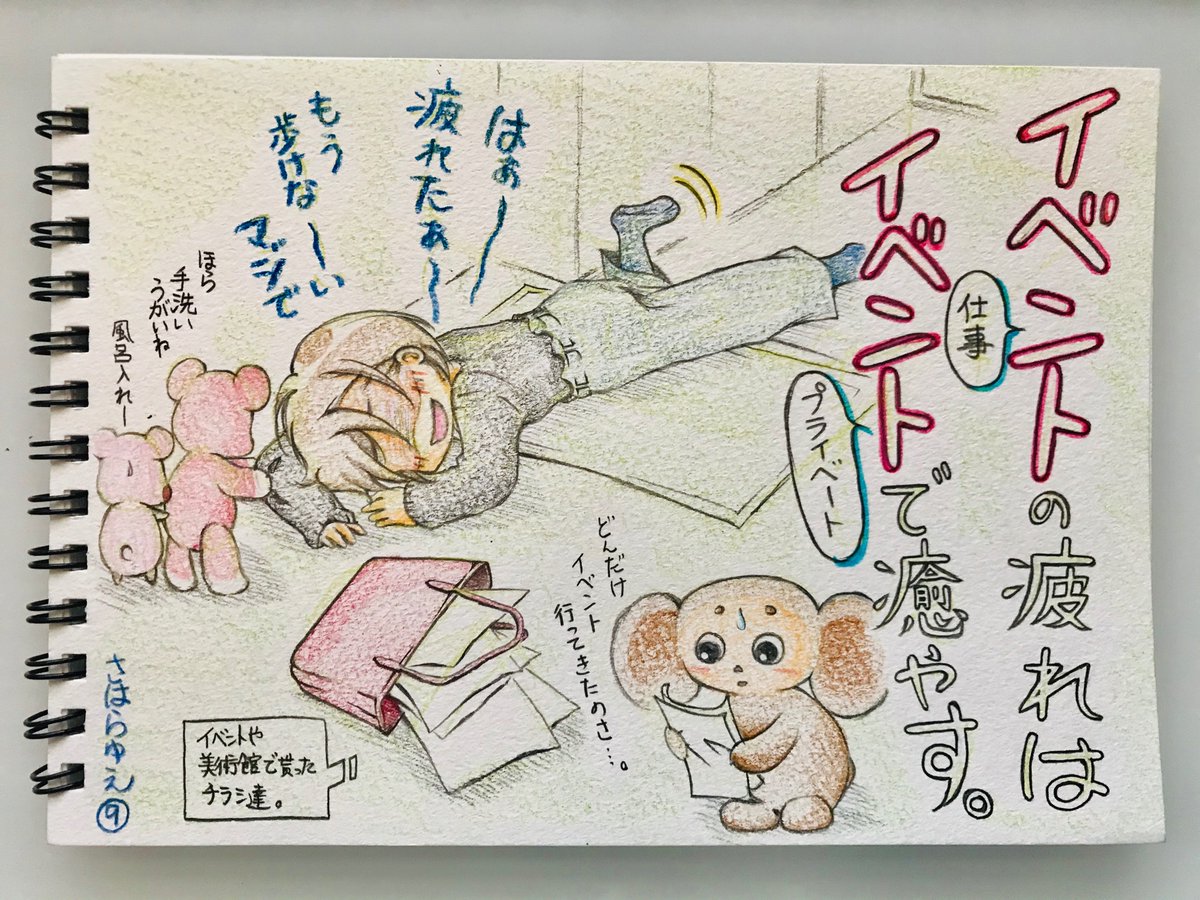 イベントの疲れは
仕事
イベントで癒やす。
プライベート
はぁ〜
疲れたぁ〜
もう
歩けな〜い
マジで
ほら
手洗い
うがいね
風呂入れー
どんだけ
イベント
行ってきたのさ…。
イベントや
美術館で貰った
チラシ達。
さほらゆえ⑨